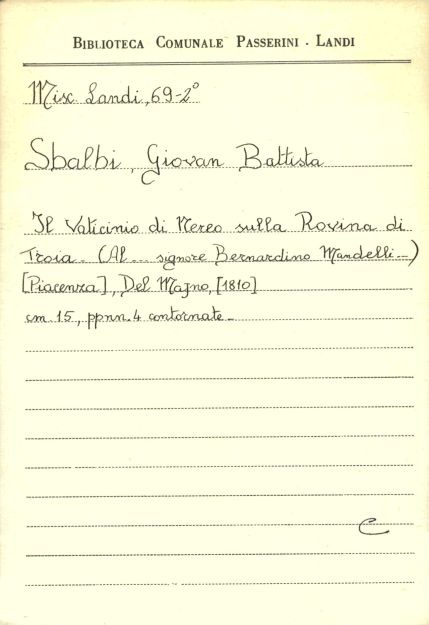 BIBLIOTECA COMUNALE PASSERINI - LANDI
Misc. Landi, 69-2°
Sbalbi, Giovan Battista
Il Vaticinio di Nereo sulla Rovina di
Troia. (Al... signore Bernardino Mandelli...)
[Piacenza], Del Majno, [1810]
cm. 15, ppnn. 4 contornate.
C